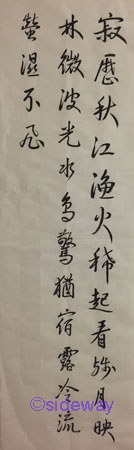 寂歷秋江漁火稀起看殘月映
林微波光水鳥驚猶宿露冷流
螢濕不飛
©sideway